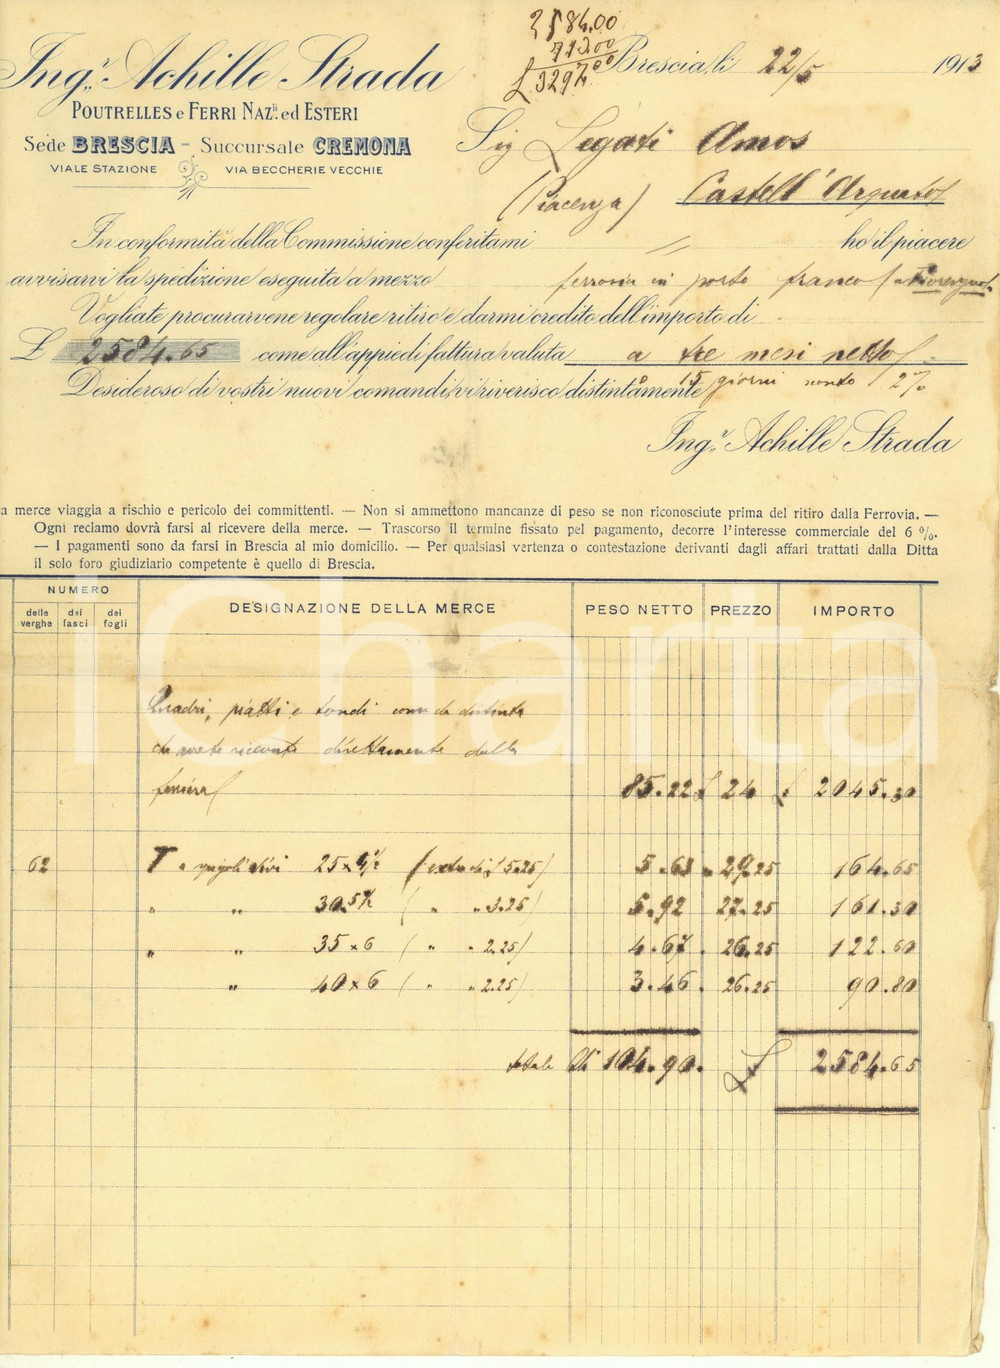 2584.00
713.00
£ 3297.00
Ing.r Achille Strada
Brescia, li 22/5 1913
Poutrelles e Ferri Naz.li ed Esteri
Sede BRESCIA - Succursale CREMONA
VIALE STAZIONE VIA BECCHERIE VECCHIE
Sig Legati Amos
(Piacenza) Castell'Arquato
In conformità della Commissione conferitami ho il piacere
avvisarvi la spedizione eseguita a mezzo ferrovia in porto franco
Vogliate procurarvene regolare ritiro e darmi credito dell'importo di
£ 2584.65 come all'appiedi fattura valuta a tre mesi netto
Desideroso di vostri nuovi comandi vi riverisco distintamente
15 giorni sconto 2%
Ing.r Achille Strada
a merce viaggia a rischio e pericolo dei committenti. — Non si ammettono mancanze di peso se non riconosciute prima del ritiro dalla Ferrovia. —
Ogni reclamo dovrà farsi al ricevere della merce. — Trascorso il termine fissato pel pagamento, decorre l'interesse commerciale del 6 %.
— I pagamenti sono da farsi in Brescia al mio domicilio. — Per qualsiasi vertenza o contestazione derivanti dagli affari trattati dalla Ditta
il solo foro giudiziario competente è quello di Brescia.
NUMERO
delle verghe dei fasci dei fogli DESIGNAZIONE DELLA MERCE PESO NETTO PREZZO IMPORTO
iCharta
Quadri, piatti e tondi come da distinta
da avete ricevuto direttamente dalla
ferriera 85.22 £ 24 £ 2045.30
62 T a spigoli vivi 25 x 4 1/2 ( £ 5.25) 5.63 29.25 164.65
" " 30.5 1/2 ( " " 3.25) 5.92 27.25 161.30
" " 35 x 6 ( " " 2.25) 4.67 26.25 122.60
" 40 x 6 ( " " 2.25) 3.46 26.25 90.80
totale 104.90 £ 2584.65